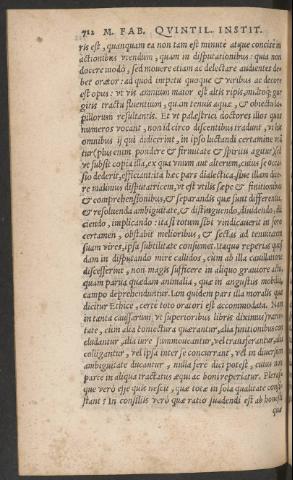 712 M. FAB. QVINTIL. INSTIT.
ris est, quanquam ea non tam est minute atque concise in
actionibus utendum, quam in disputationibus: quia non
docere modò, sed mouere etiam ac delectare audientes de-
bet orator: ad quod impetu quoque & uiribus ac decore
est opus: ut uis amnium maior est altis ripis, multoque gur-
gitis tractu fluentium, quàm tenuis aquæ, & obiectu la-
pillorum resultantis. Et ut palæstrici doctores illos quos
numeros uocant, non idcirco discentibus tradunt, ut his
omnibus ij qui didicerint, in ipso luctandi certamine
(plus enim pondere & firmitate & spiritu agitur)
ut subsit copia illa, ex qua unum aut alterum, cuius se occa
sio dederit, efficiant: ita hæc pars dialectica, siue illam dice-
re malimus disputatricem, ut est utilis sæpe & finitionibus
& comprehensionibus, & separandis quæ sunt differentia,
& resoluenda ambiguitate, & distinguendo, diuidendo, il-
liciendo, implicando: ita si totum sibi uindicauerit in foro
certamen, obstabit melioribus, & sectas ad tenuitatem
suam uires, ipsa subtilitate consumet. Itaque reperias quos-
dam in disputando mirè callidos, cum ab illa cauillatione
discesserint, non magis sufficere in aliquo grauiore actu,
quàm parua quædam animalia, quæ in angustijs mobilia,
campo deprehenduntur. Iam quidem pars illa moralis quæ
dicitur Ethice, certè toto oratori est accommodata. Nam
in tanta caussarum, ut superioribus libris diximus, uarie-
tate, cum alia coniectura quærantur, alia finitionibus con
cludantur, alia iure summoueantur, uel transferantur, alia
colligantur, uel ipsa inter se concurrant, uel in diuersum
ambiguitate ducantur, nulla ferè dici potest, cuius non
parte in aliqua tractatus æqui ac boni reperiatur. Plerasque
uerò esse quis nescit, quæ totæ in sola qualitate consi-
stant? In consilijs uerò quæ ratio suadendi est ab honesti
quæ